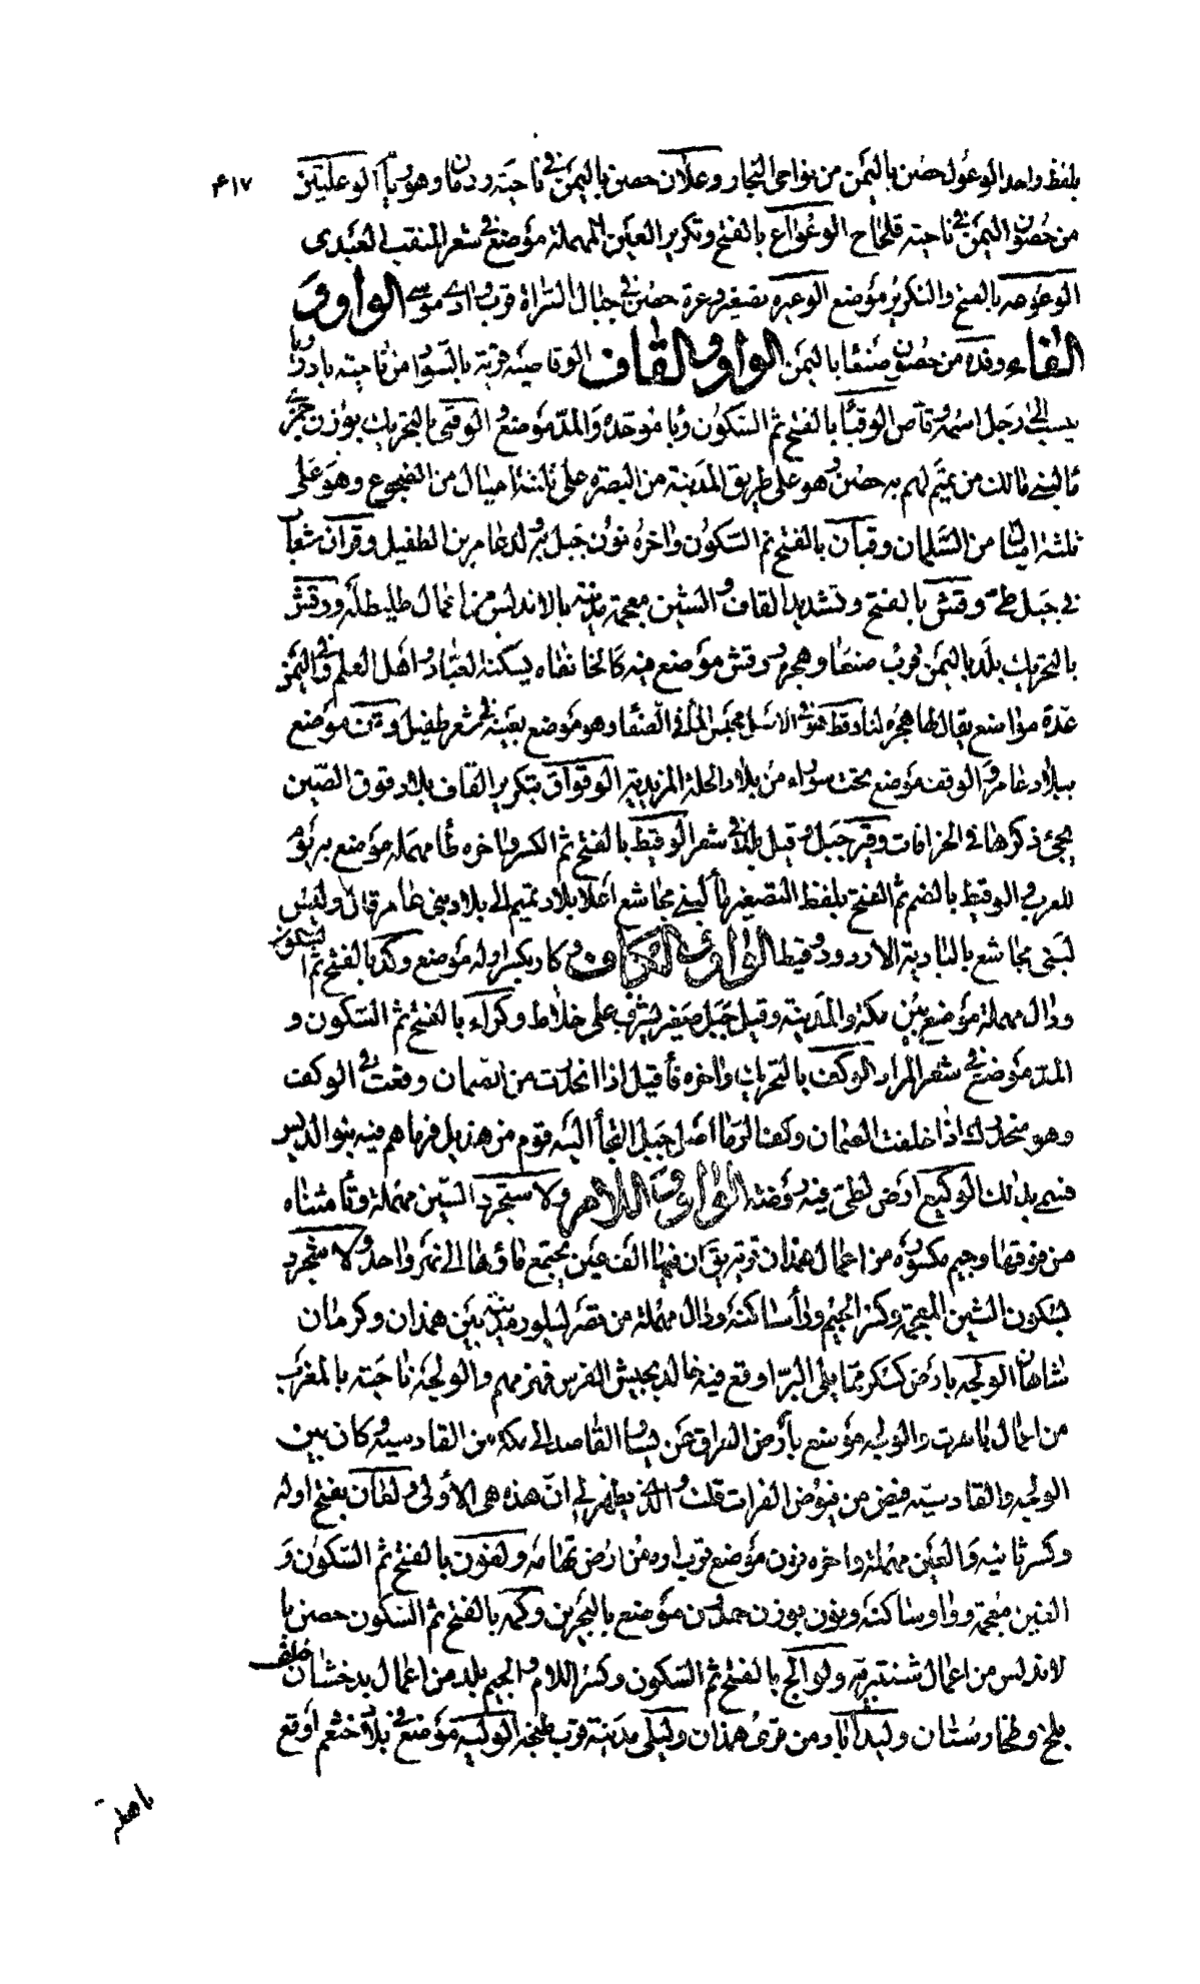 ٤١٧
بلفظ واحد الوعول حصن باليمن من نواحي النجار وعلان حصن باليمن في ناحية ردمان وهو رياء الوعليتين
من حصون اليمن في ناحية قلحاح الوعواع بالفتح وتكرير العين المهملة موضع في شعر المثقب العبدي
الوعوعه بالفتح والتكرير موضع الوعيره تصغير وعرة حصن في جبال الشراة قرب وادي موسى الواو و
الفاء وفده من حصون صنعا باليمن الواو والقاف الوقاصيه قرية بالسواد من ناحية بادوريا
ينسب الى رجل اسمه وقاص الوقبا بالفتح ثم السكون وبا موحدة والمد موضع والوقبى بالتحريك بوزن جمزى
ما لبني مالك من تميم لهم به حصن وهو على طريق المدينة من البصره على ثلثة اميال من الضجوع وهو على
ثلثة اميال من السلمان وقبان بالفتح ثم السكون واخره نون جبل وبئر لد عامر بن الطفيل وقران شعاب
في جبل طي وقش بالفتح وتشديد القاف والشين معجمة مدينة بالاندلس من اعمال طليطلة ووقش
بالتحريك بلد باليمن قرب صنعا وهجرة وقش موضع فيه كالخانقاه يسكنه العباد واهل العلم وفي اليمن
عدة مواضع يقال لها هجرة وقط هو في الاصل مجتمع الماء في الصفا وهو موضع بعينه في شعر طفيل موضع
ببلاد عامر والوقف موضع تحت سوراء من بلاد الحلة المزيدية الوقواق بتكرير القاف بلاد فوق الصين
يجئ ذكرها في الخرافات وقير جبل وقيل بلد في شعر الوقيط بالفتح ثم الكسر واخره طا مهملة موضع به يوم
للعرب والوقيط بالضم ثم الفتح بلفظ التصغير ما لبني مجاشع اعلا بلاد تميم الى بلاد بني عامر قال وليس
لبني مجاشع بالبادية الا زرود ووقيط الواو والكاف وكار بكسر اوله موضع وكد بالفتح ثم السكون
ودال مهملة موضع بين مكة والمدينة وقيل جبل صغير يشرف على خلاط وكراء بالفتح ثم السكون و
المد موضع في شعر المرار الوكف بالتحريك واخره فا قيل اذا انحدرت من الصمان وقعت في الوكف
وهو منحدرك اذا خلفت الصمان وكف الرماة اصل جبل الجأ اليه قوم من هذيل فرماهم فيه بنو الديل
فسمي بذلك الوكيع ارض لطي فيه روضة الواو واللام ولاستجرد السين مهملة وتا مثناه
من فوقها وجيم مكسورة من اعمال همذان قرية يقال ان فيها الف عين يجتمع ماؤها الى نهر واحد ولاشجرد
بسكون الشين المعجمة وكسر الجيم ورا ساكنه ودال مهملة من قصر اللصوص مدينة بين همذان وكرمان
شاهان الولجه بارض كسكر مما يلي البر اوقع فيه خالد بجيش الفرس فهزمهم والولجة ناحية بالمغرب
من اعمال تاهرت والولجه موضع بارض العراق عن يسار القاصد الى مكة من القادسية وكان بين
الولجه والقادسيه فيض من فيوض الفرات قلت والذي يظهر لي ان هذه هي الاولى ولعان بفتح اوله
وكسر ثانيه والعين مهملة واخره نون موضع قرب اره من ارض تهامه ولغون بالفتح ثم السكون و
الغين معجمة وواو ساكنه ونون بوزن حمدون موضع بالبحرين وكمه بالفتح ثم السكون حصن با
لاندلس من اعمال شنتبرية ولوالج بالفتح ثم السكون وكسر اللام والجيم بلد من اعمال بدخشان خلف
بلخ وطخارستان وليداباد من قرى همذان وليلى مدينة قرب طنجه الوليه موضع في بلاد خثعم اوقع
باهله